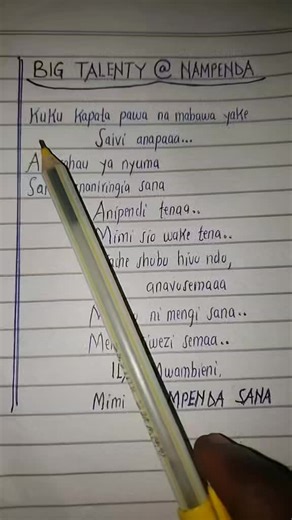 BIG TALENTY @ NAMPENDA
Kuku kapata pawa na mabawa yake
Saivi anapaaa...
ya nyuma
sana
Anipendi tenaa..
Mimi sio wake tena..
shubo hivo ndo,
anavosemaaa
ni mengi sana..
semaa..
Mwambieni,
Mimi SANA